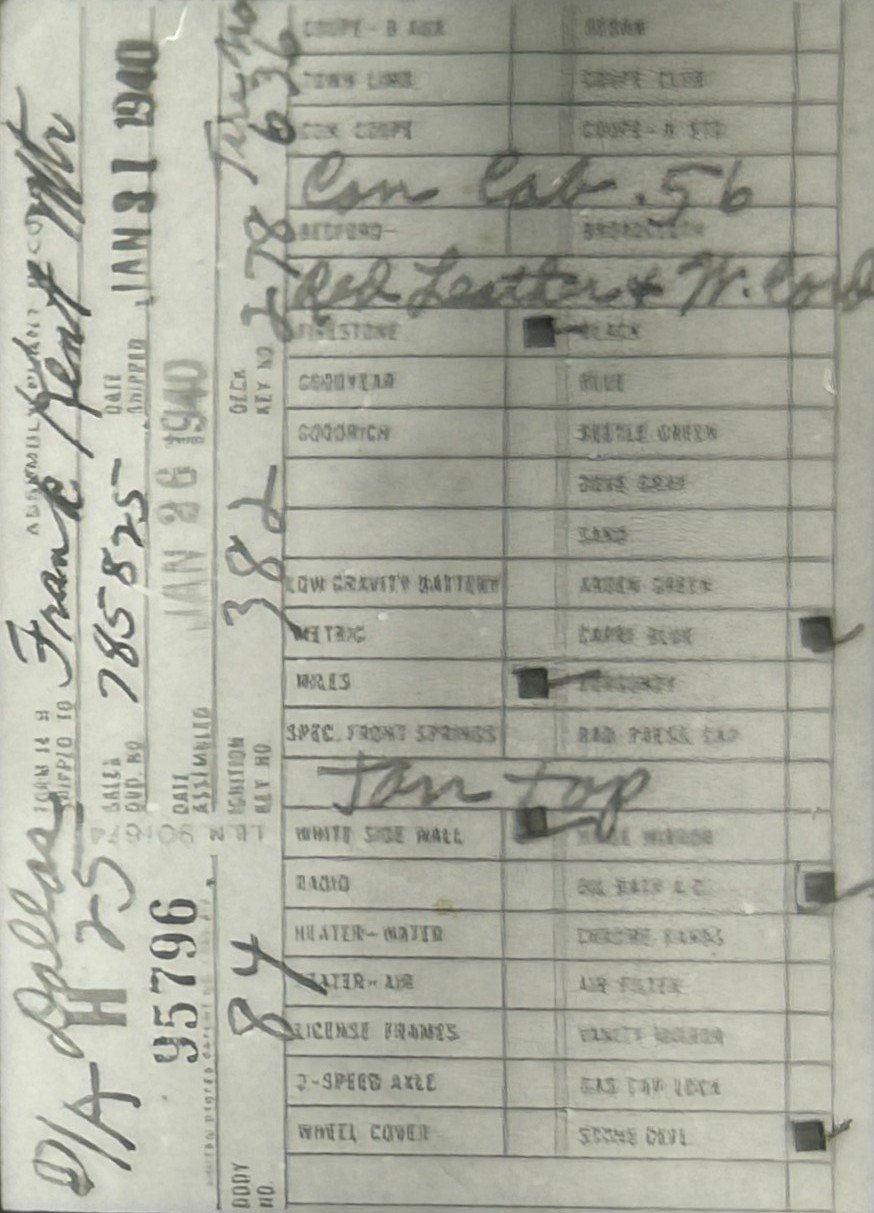 D/A Dallas
H 25
95796
BODY NO.
84
SHIPPED TO Frank Kent Mtr
SALES ORD. NO. 785825
DATE SHIPPED JAN 31 1940
DATE ASSEMBLED JAN 26 1940
IGNITION KEY NO. 382
DECK KEY NO. 278
636
COUPE - B AUX SEDAN
TOWN LIMO COUPE CLUB
CON COUPE COUPE - A STD
Con Cab .56
BEDFORD- BROADCLOTH
Red Leather & W. Cord
FIRESTONE BLACK
GOODYEAR BLUE
GOODRICH GREEN
DOVE GRAY
SAND
LOW GRAVITY BATTERY GREEN
METRIC BLUE
MILES BURGUNDY
SPEC. FRONT SPRINGS RAD PRESS CAP
Tan top
WHITE SIDE WALL MIRROR
RADIO
HEATER-WATER CHROME BANDS
HEATER-AIR AIR FILTER
LICENSE FRAMES VANITY MIRROR
2-SPEED AXLE GAS CAP LOCK
WHEEL COVER